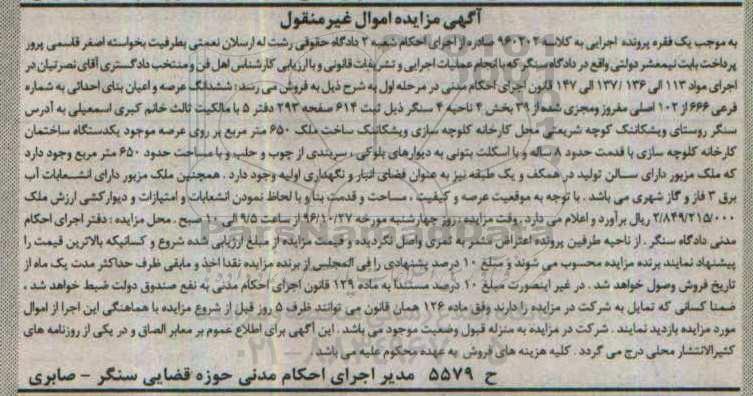 آگهی مزایده اموال غیرمنقول
به موجب یک فقره پرونده اجرایی به کلاسه ۹۶۰۲۰۲ صادره از اجرای احکام شعبه ۲ دادگاه حقوقی رشت له ارسلان نعمتی بطرفیت بخواسته اصغر قاسمی پرور
پرداخت بابت نیمعشر دولتی واقع در دادگاه سنگر که با انجام عملیات اجرایی و تشریفات قانونی و با ارزیابی کارشناس اهل فن و منتخب دادگستری آقای نصرتیان در
اجرای مواد ۱۱۳ الی ۱۳۶ / ۱۳۷ الی ۱۴۷ قانون اجرای احکام مدنی در مرحله اول به شرح ذیل به فروش می رسد: ششدانگ عرصه و اعیان بنای احداثی به شماره
فرعی ۶۶۶ از ۱۰۲ اصلی مفروز ومجزی شده از ۳۹ بخش ۴ ناحیه ۴ سنگر ذیل ثبت ۶۱۴ صفحه ۲۹۳ دفتر ۵ با مالکیت ثالث خانم کبری اسمعیلی به آدرس
سنگر روستای ویشکاننک کوچه شریعتی محل کارخانه کلوچه سازی ویشکاننک ساخت ملک ۶۵۰ متر مربع بر روی عرصه موجود یکدستگاه ساختمان
کارخانه کلوچه سازی با قدمت حدود ۸ ساله و با اسکلت بتونی به دیوارهای بلوکی ، سربندی از چوب و حلب و با مساحت حدود ۶۵۰ متر مربع وجود دارد
که ملک مزبور دارای سالن تولید در همکف و یک طبقه نیز به عنوان فضای انبار و نگهداری اولیه وجود دارد . همچنین ملک مزبور دارای انشعابات آب
برق ۳ فاز و گاز شهری می باشد . با توجه به موقعیت عرصه و کیفیت ، مساحت و قدمت بنا و با لحاظ نمودن انشعابات و امتیازات و دیوارکشی ارزش ملک
۲/۸۴۹/۲۱۵/۰۰۰ ریال برآورد و اعلام می دارد . وقت مزایده : روز چهارشنبه مورخه ۹۶/۱۰/۲۷ از ساعت ۹/۵ الی ۱۰ صبح . محل مزایده : دفتر اجرای احکام
مدنی دادگاه سنگر . از ناحیه طرفین پرونده اعتراض مثمر به ثمری واصل نگردیده و قیمت مزایده از مبلغ ارزیابی شده شروع و کسانیکه بالاترین قیمت را
پیشنهاد نمایند برنده مزایده محسوب می شوند و مبلغ ۱۰ درصد پیشنهادی را فی المجلس از برنده مزایده نقدا اخذ و مابقی ظرف حداکثر مدت یک ماه از
تاریخ فروش وصول خواهد شد . در غیر اینصورت مبلغ ۱۰ درصد مستندا به ماده ۱۲۹ قانون اجرای احکام مدنی به نفع صندوق دولت ضبط خواهد شد ،
ضمنا کسانی که تمایل به شرکت در مزایده را دارند وفق ماده ۱۲۶ همان قانون می توانند ظرف ۵ روز قبل از شروع مزایده با هماهنگی این اجرا از اموال
مورد مزایده بازدید نمایند . شرکت در مزایده به منزله قبول وضعیت موجود می باشد . این آگهی برای اطلاع عموم بر معابر الصاق و در یکی از روزنامه های
کثیرالانتشار محلی درج می گردد . کلیه هزینه های فروش به عهده محکوم علیه می باشد .
ح ۵۵۷۹ مدیر اجرای احکام مدنی حوزه قضایی سنگر - صابری